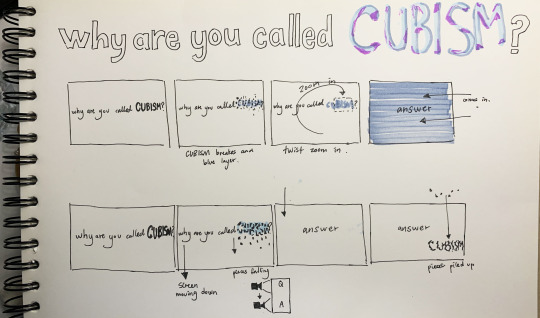 why are you called CUBISM?
why are you called CUBISM?
why are you called CUBISM?
CUBISM breakes and
blue layer.
zoom in
why are you called CUBISM?
twist zoom in.
answer
comes in.
why are you called CUBISM?
screen
moving down
why are you called
pieces falling
Q
A
answer
answer
CUBISM
pieces piled up